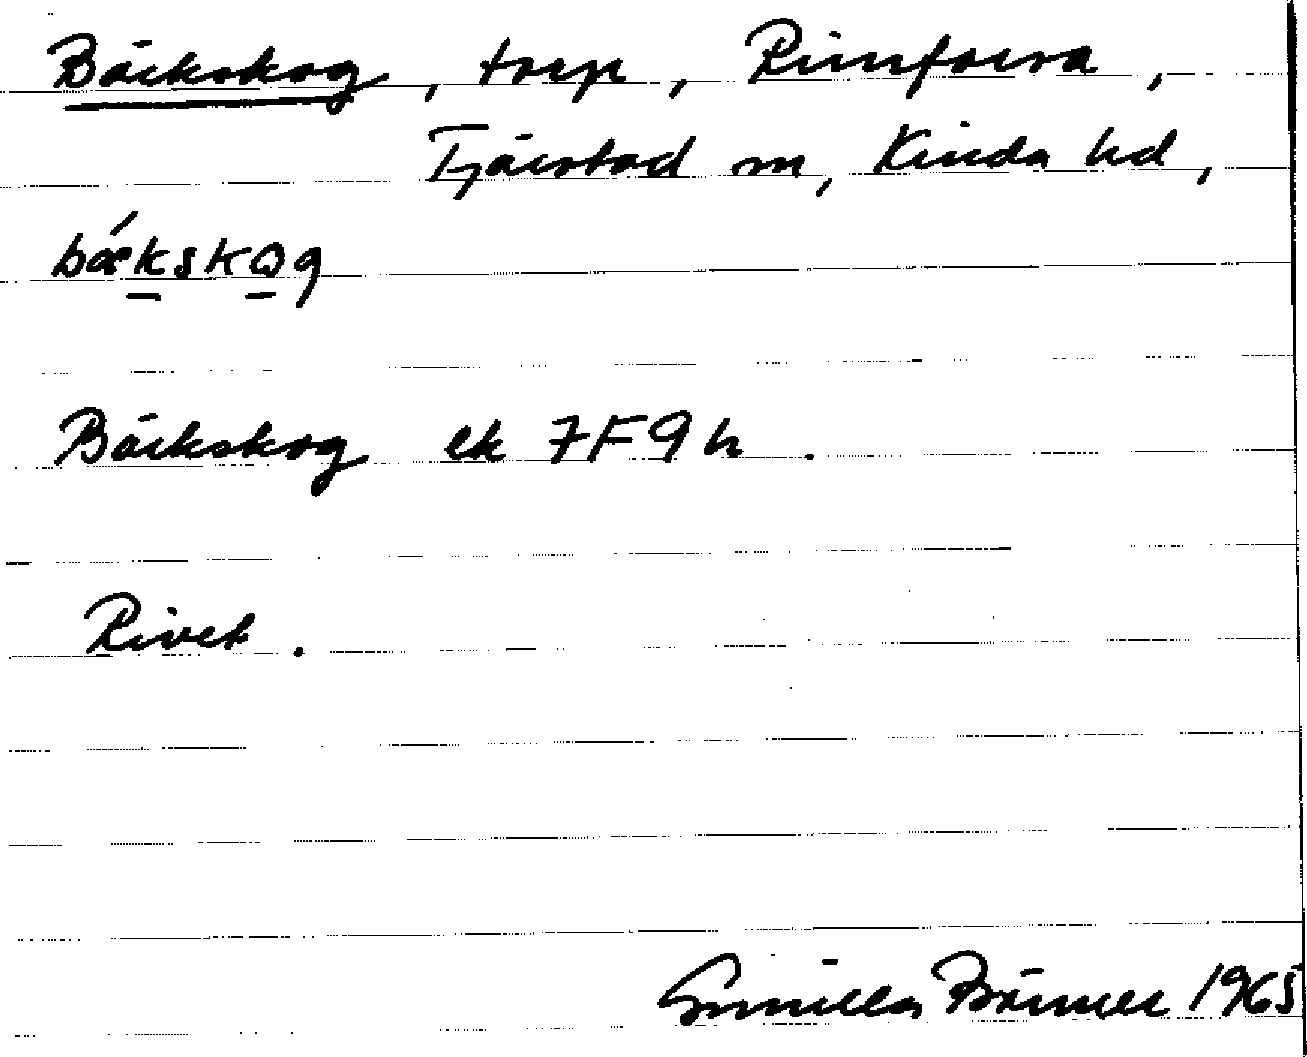 Bäckskog, torp, Rimforsa,
Tjärstad sn, Kinda hd,
bǽkskog
Bäckskog ek 7F9h.
Rivet.
Gunilla 1965